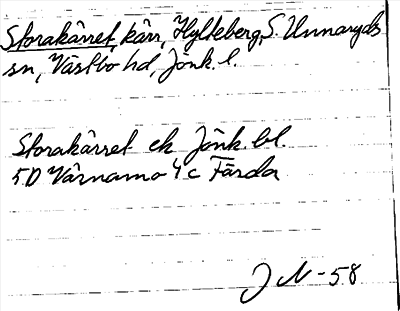 Storakärret, kärr, Hylteberg, S. Unnaryds
sn, Västbo hd, Jönk. l.
Storakärret ek Jönk. bl.
5D Värnamo 4c Färda
J N -58